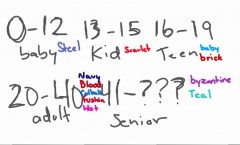 0-12 13-15 16-19
baby Steel Kid Scarlet Teen baby brick
20-40 Navy Blood Cobalt Fushia Hot 41-??? byzantine Teal
adult Senior